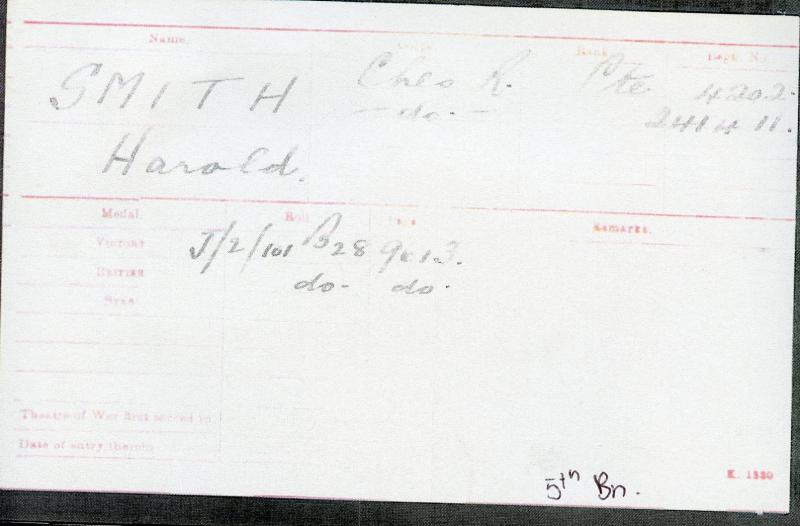 Name. Corps. Rank. Regtl. No.
SMITH Ches R. Pte 4202.
—do.— 241411.
Harold.
Medal. Roll. Page Remarks.
VICTORY J/2/101 B28 9013.
BRITISH do. do.
STAR
Theatre of War first served in
Date of entry therein
K. 1380
5th Bn.